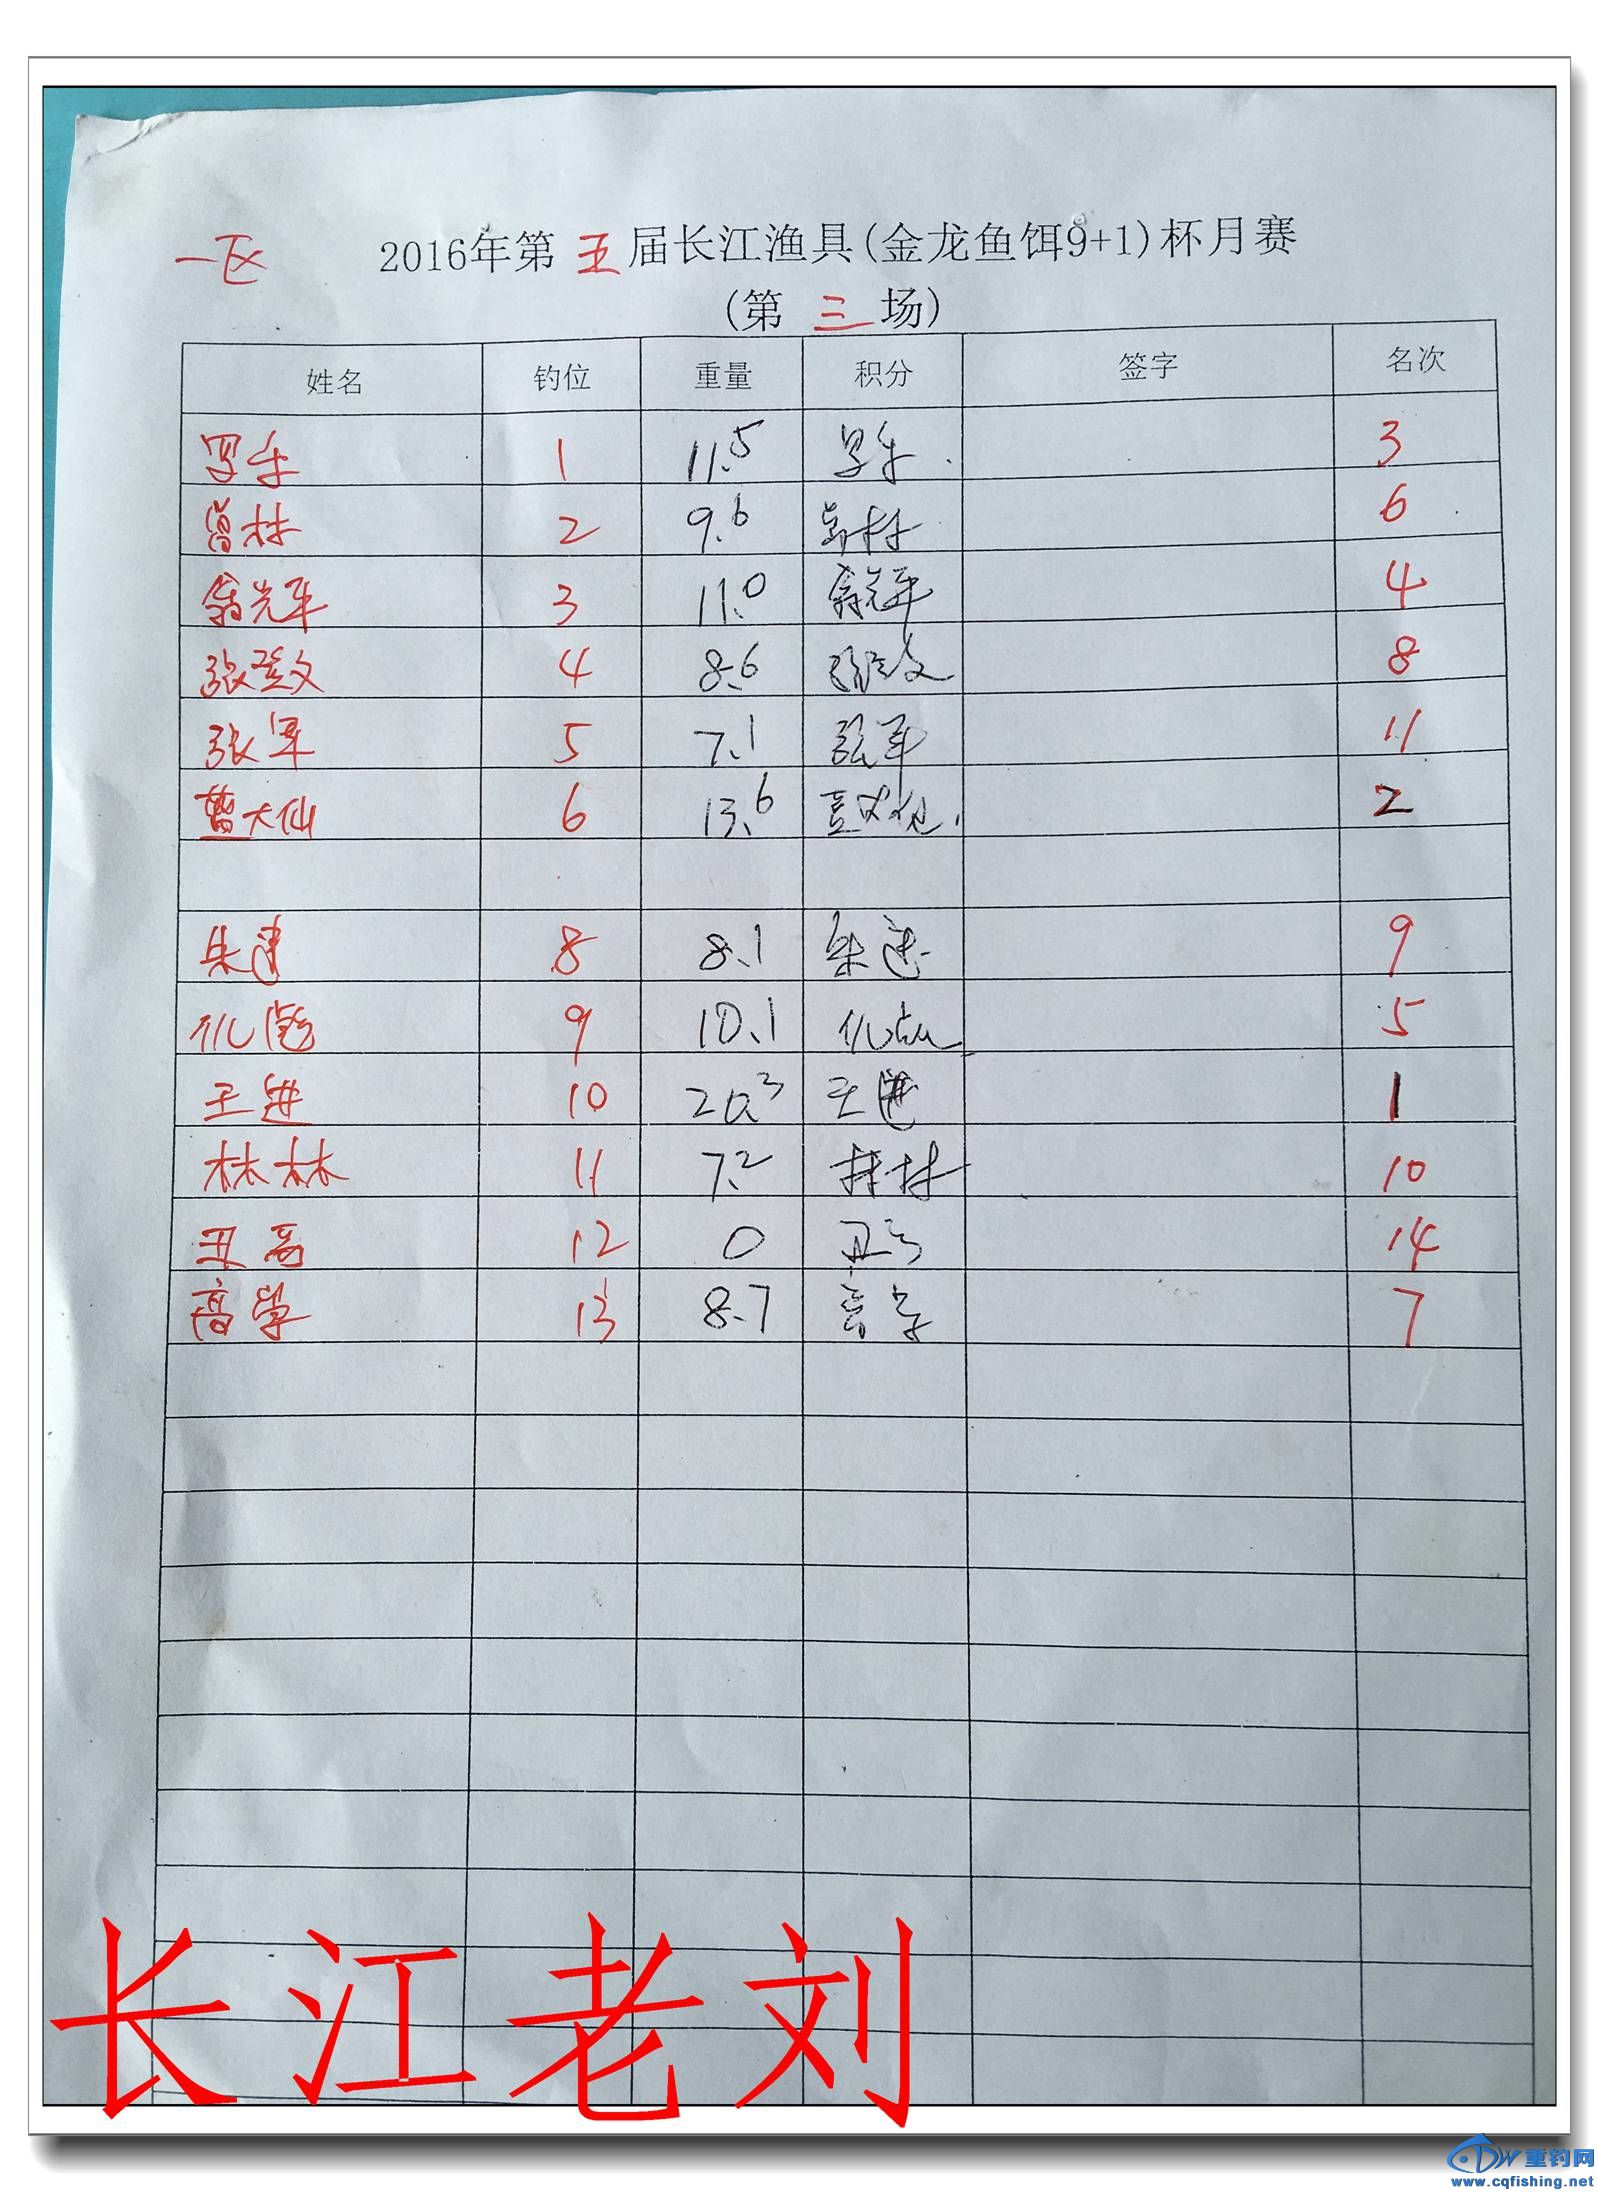 一区 2016年第 五 届长江渔具(金龙鱼饵9+1)杯月赛
(第 三 场)
姓名 钓位 重量 积分 签字 名次
罗乐 1 11.5 罗乐 3
曾林 2 9.6 曾林 6
翁光平 3 11.0 翁光平 4
张 文 4 8.6 张 文 8
张军 5 7.1 张军 11
曹大仙 6 13.6 2
朱建 8 8.1 朱建 9
9 10.1 5
王进 10 20.3 王进 1
林林 11 7.2 林林 10
丑高 12 0 14
高学 13 8.7 高学 7
长江老刘
重钓网
www.cqfishing.net